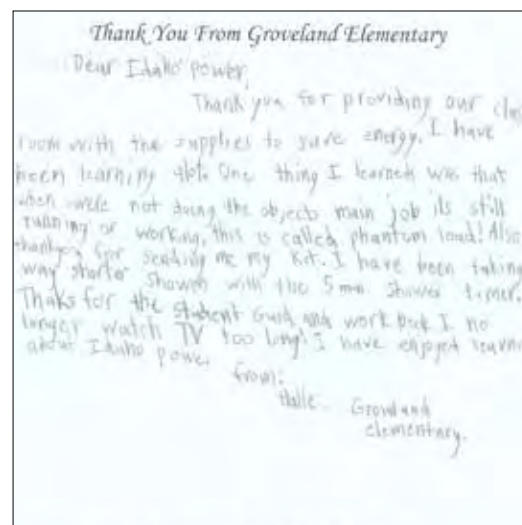 Thank You From Groveland Elementary
Dear Idaho power,
Thank you for providing our clas
room with the supplies to save energy. I have
been learning alot. One thing I learned was that
when were not doing the objects main job its still
running or working, this is called phantom load! Also
thankyou for sending me my kit. I have been taking
way shorter showers with the 5 min shower timer.
Thaks for the student Guid and work book I no
longer watch TV too long! I have enjoyed learnin
about Idaho power.
from:
Groveland
elementary.